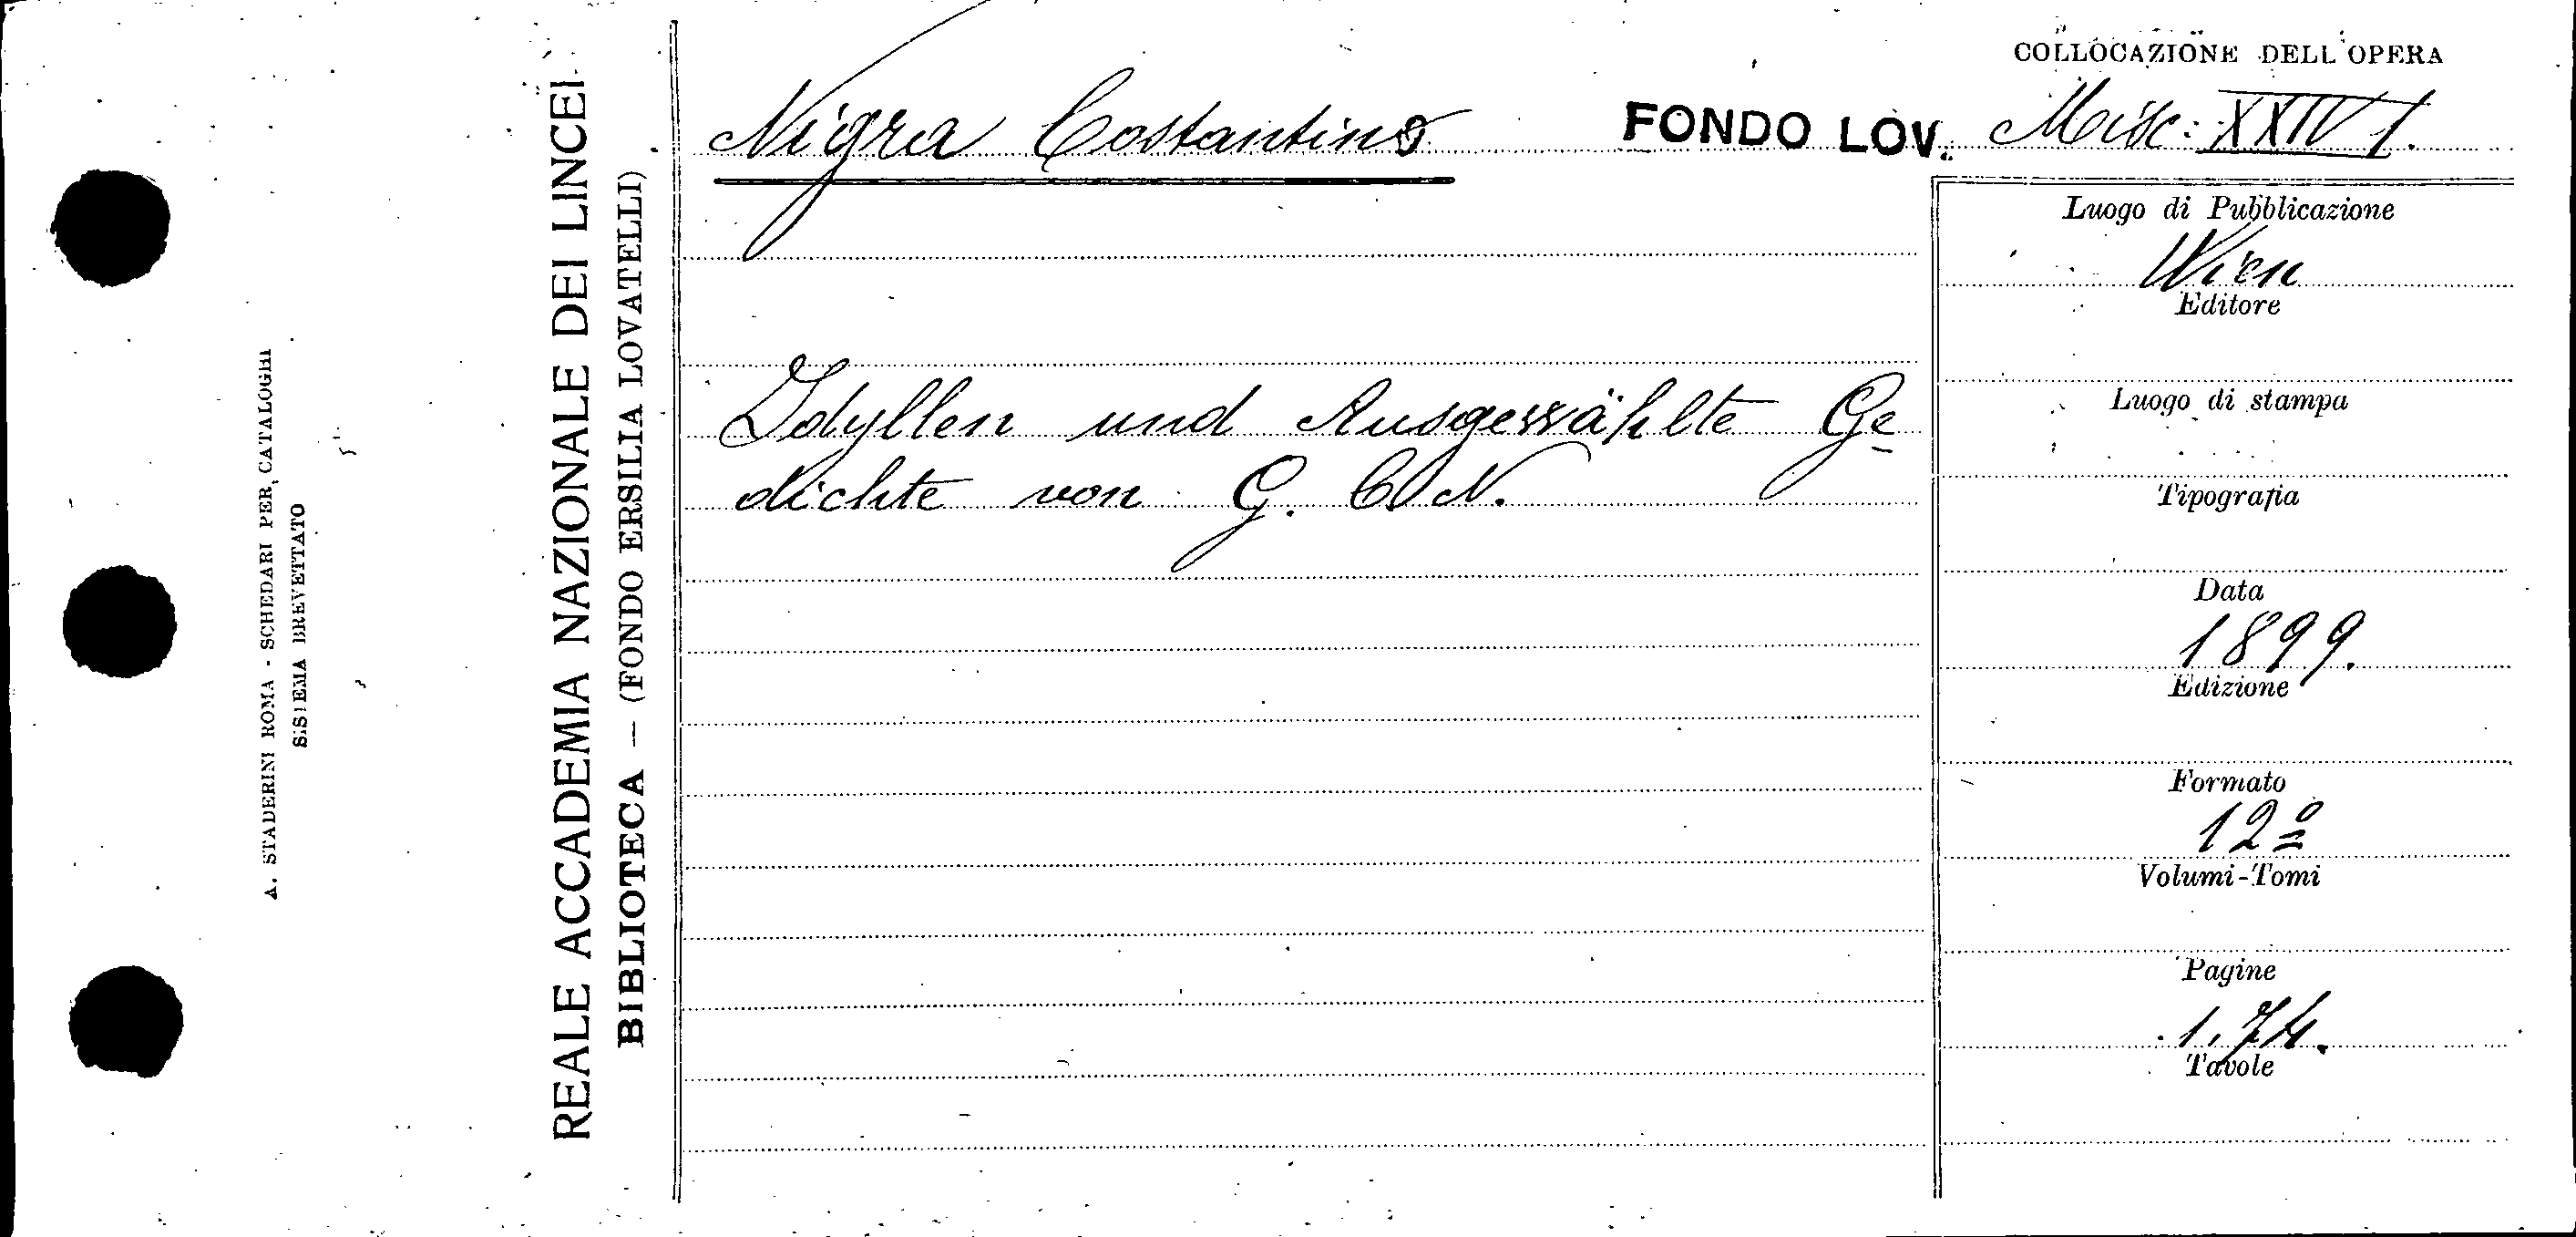 COLLOCAZIONE DELL'OPERA
Nigra Costantino
FONDO LOV. Misc: XXIV 1.
Idyllen und Ausgewählte Ge-
dichte von G. C. N.
Luogo di Pubblicazione
Wien
Editore
Luogo di stampa
Tipografia
Data
1899.
Edizione
Formato
12º
Volumi-Tomi
Pagine
1,74.
Tavole
REALE ACCADEMIA NAZIONALE DEI LINCEI
BIBLIOTECA — (FONDO ERSILIA LOVATELLI)
A. STADERINI ROMA - SCHEDARI PER CATALOGHI
SISTEMA BREVETTATO